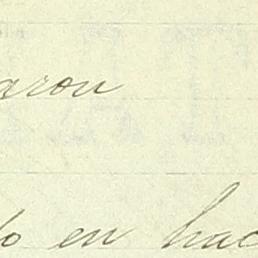 aron
lo en hac